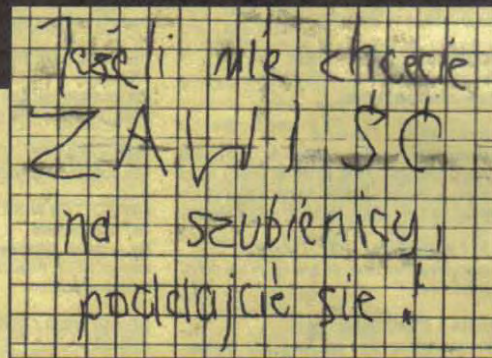 Jeżeli nie chcecie
ZAWISŚĆ
na szubienicy,
poddajcie sie!